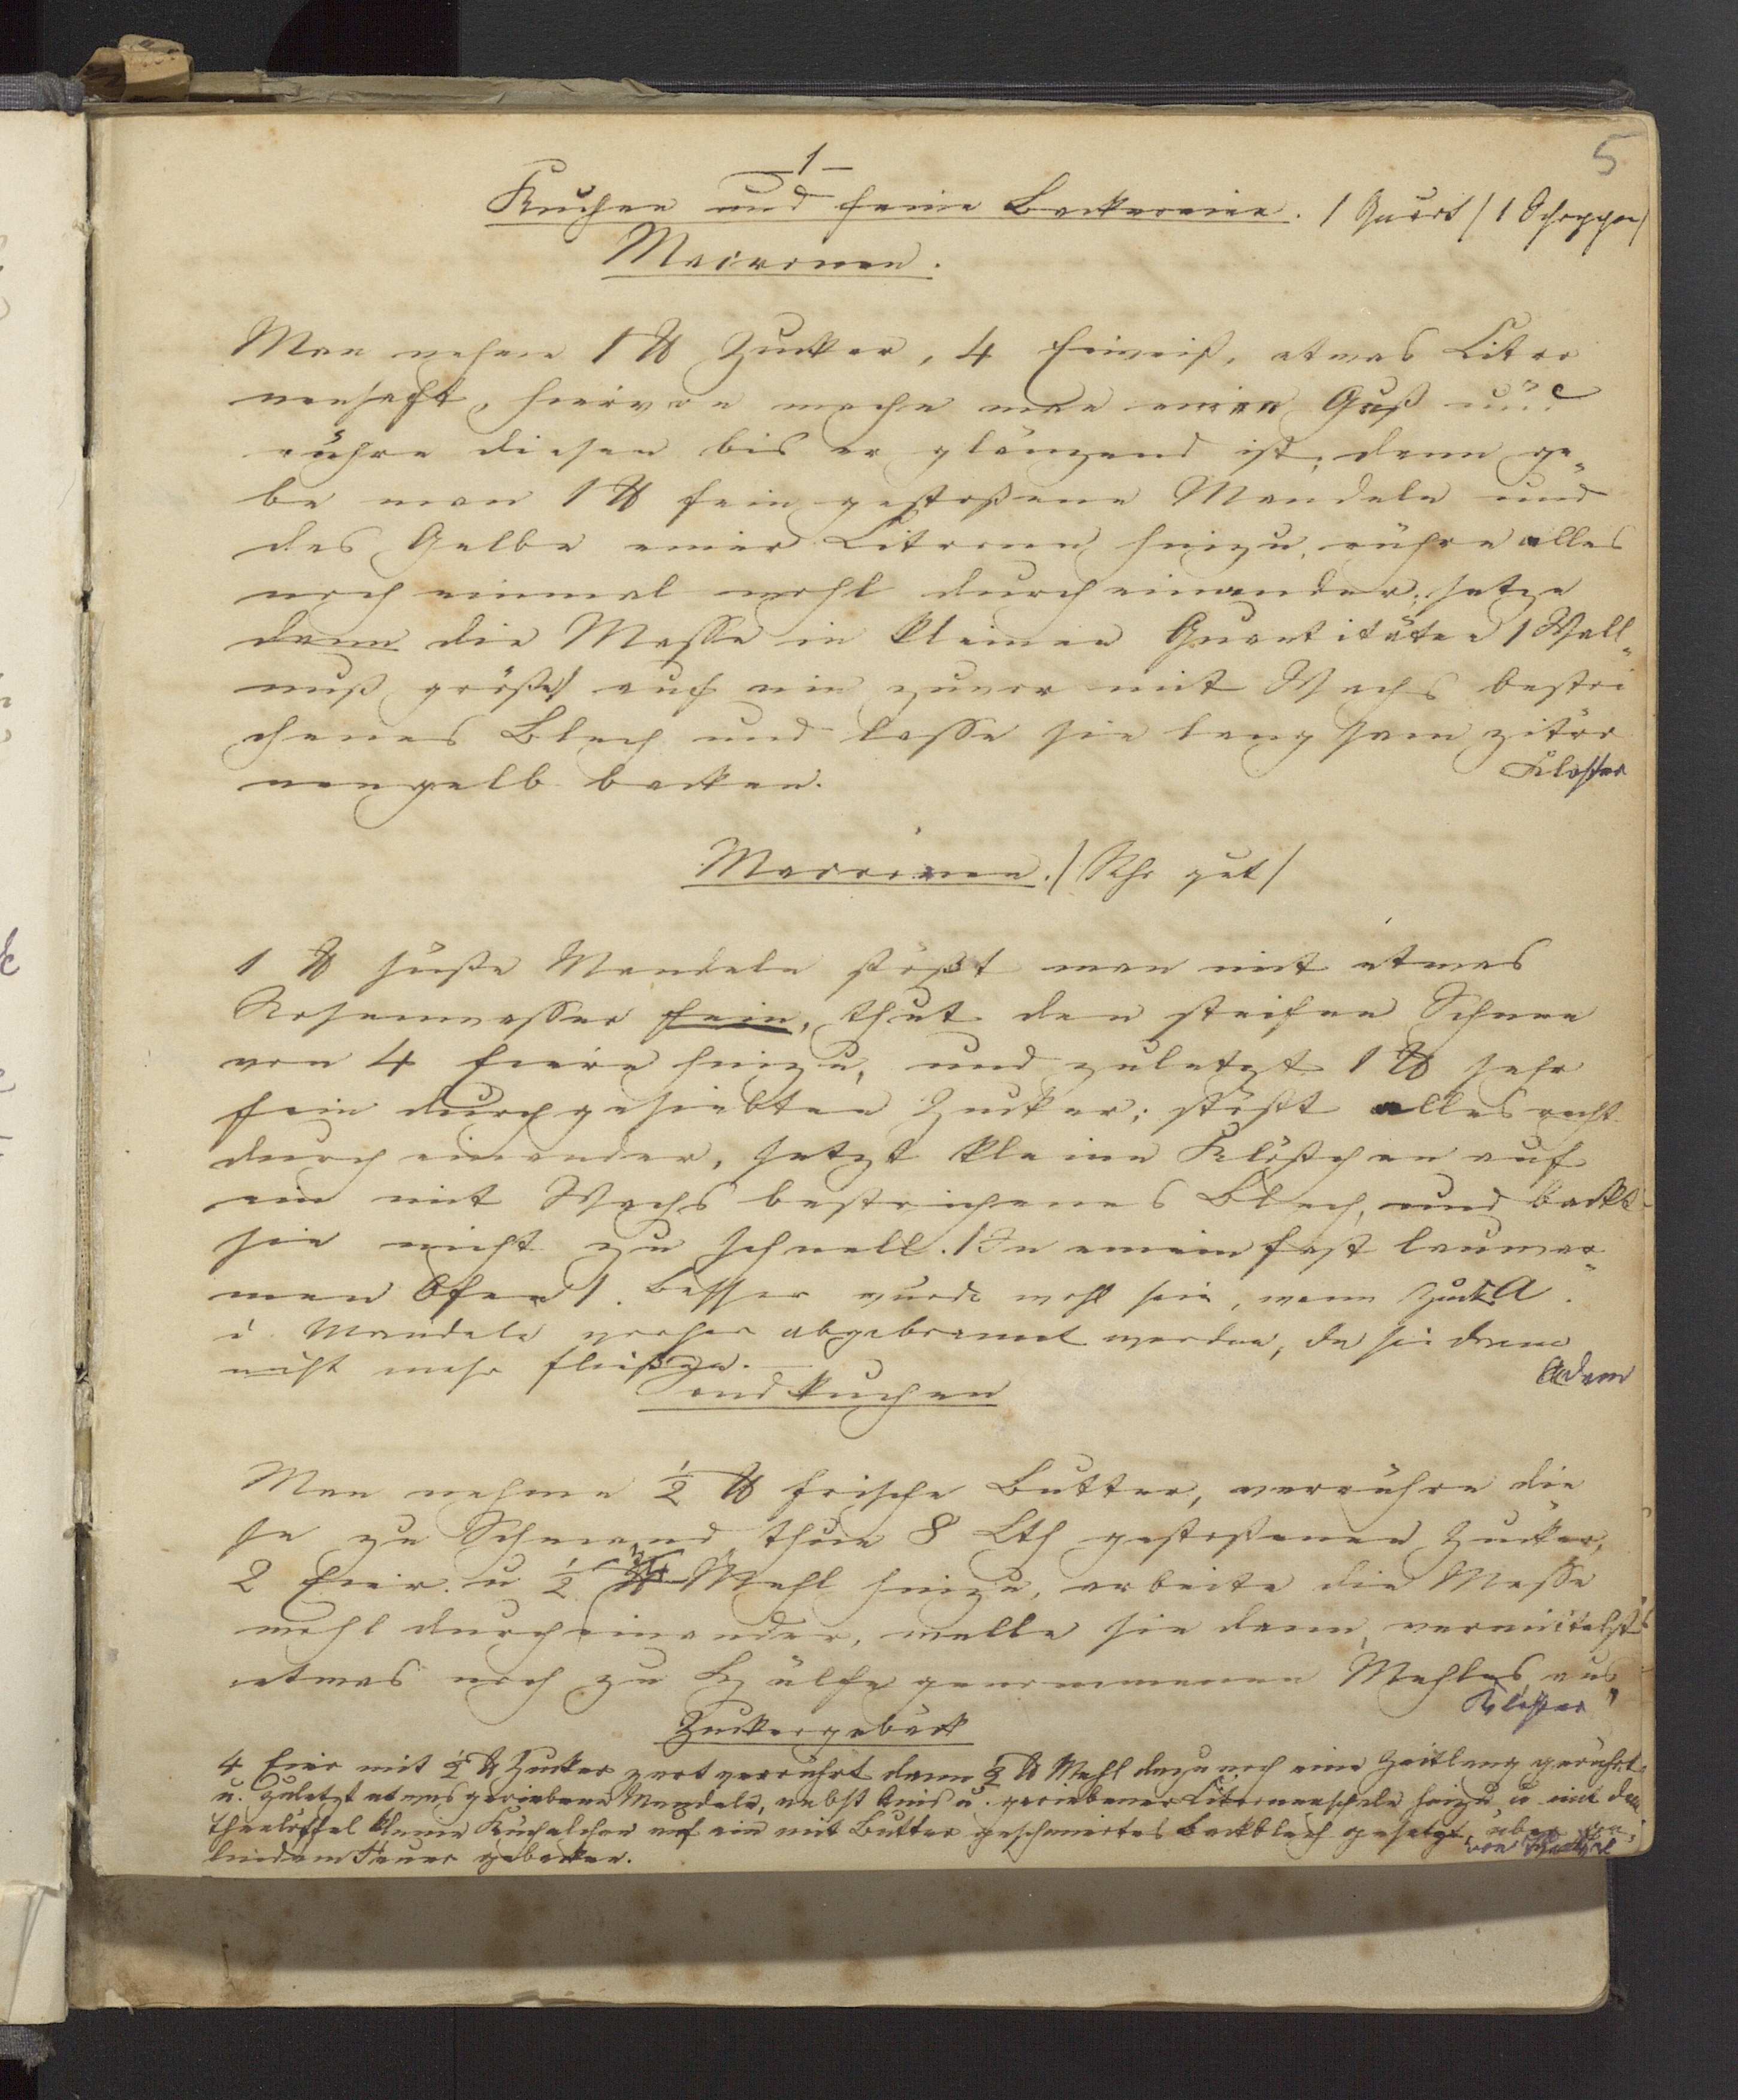 5
1
Kuchen und feine Backereien. / 1 Quart / 1 Schoppen /
Macronen.
Man nehme 1 ℔ Zucker, 4 Eiweiß, etwas Citro
nensaft, hiervon mache man einen Guß und
rühre diesen bis er glänzend ist, dann ge„
be man 1 ℔ fein gestoßene Mandeln und
das Gelbe einer Citrone hinzu, rühre alles
noch einmal wohl durcheinander; setze
dann die Masse in kleinen Quantitäten / Wall„
nuß größe / auf ein zuvor mit Wachs bestri
chenes Blech und lasse sie langsam zitro
nengelb backen.
Kloster
Macronen. / Sehr gut /
1 ℔ süße Mandeln stößt man mit etwas
Rosenwasser fein, thut den steifen Schnee
von 4 Eiern hinzu, und zuletzt 1 ℔ sehr
fein durchgesiebten Zucker; stößt alles recht
durch einander, setzt kleine Klößchen auf
ein mit Wachs bestrichenes Blech, und backt
sie nicht zu schnell. / In einem fast lauwar„
men Ofen /. Besser wurde wohl sein, wenn Zucker
u. Mandeln vorher abgebrannt werden, da sie dann
nicht mehr fließen.
Adam
Sandkuchen
Man nehme ½ ℔ frische Butter, verrühre die
se zu Schmand thue 8 Lth gestoßenen Zucker,
2 Eier u ½ ℔ Mehl hinzu, arbeite die Masse
wohl durcheinander, welle sie dann, vermittelst
etwas noch zu Hülfe genommenen Mehles, aus
Kloster
Zuckergebäck
4 Eier mit ½ ℔ Zucker zart verrührt dann ½ ℔ Mehl dazu noch eine Zeitlang gerührt
u. zuletzt etwas geriebene Mandeln, nebst Anis u. geriebener Citronenschale hinzu u mit dem
Theelöffel kleine Küchelchen auf ein mit Butter geschmiertes Backblech gesetzt, über
lindem Feuer gebacken.
von